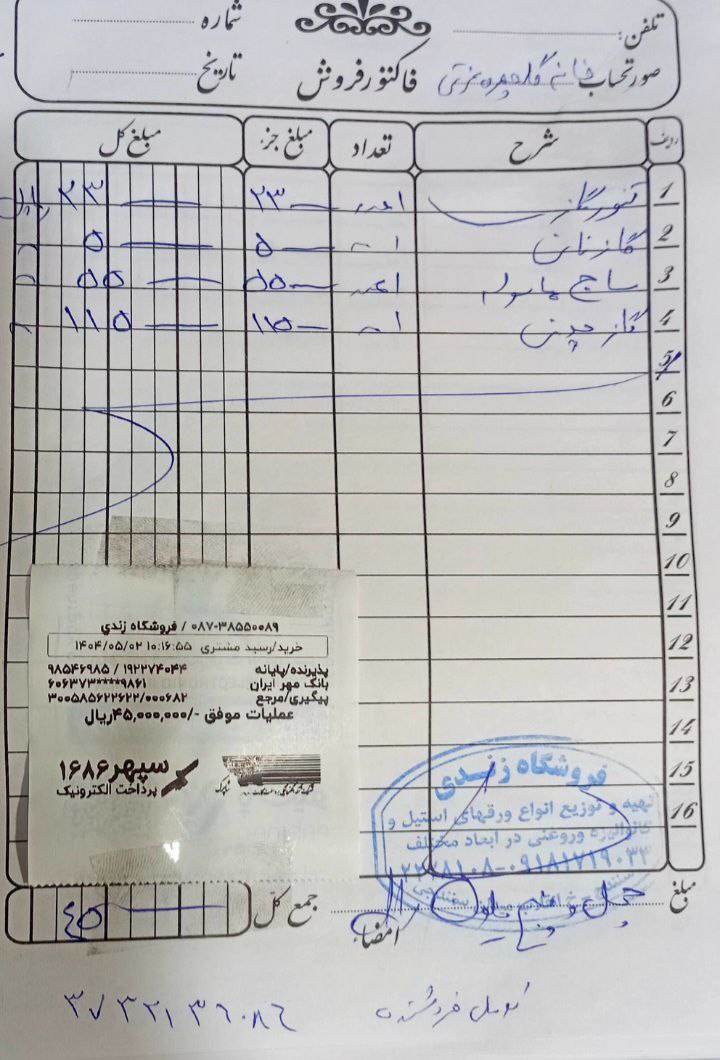 تلفن: شماره
صورتحساب خانه گلچهره عزتی فاکتور فروش تاریخ
ردیف شرح تعداد مبلغ جزء مبلغ کل
1 تنور گازی ۱ عدد ۲۳ ۲۳ ریال
2 گاز نان ۱ ۵ ۵
3 ساج ۱ عدد ۵۵ ۵۵
4 گاز ۱ ۱۱۵ ۱۱۵
5
6
7
8
9
10
11
12
13
14
15
16
۰۸۷-۳۸۵۵۰۰۸۹ / فروشگاه زندی
خرید/رسید مشتری ۱۴۰۴/۰۵/۰۲ ۱۰:۱۶:۵۵
پذیرنده/پایانه ۱۹۲۲۷۴۰۴۴ / ۹۸۵۴۶۹۸۵
بانک مهر ایران ۶۰۶۳۷۳****۹۸۶۱
پیگیری/مرجع ۳۰۰۵۸۵۶۲۲۶۲۲/۰۰۰۶۸۲
عملیات موفق -/۴۵,۰۰۰,۰۰۰ریال
سپهر ۱۶۸۶
پرداخت الکترونیک
فروشگاه زندی
تهیه و توزیع انواع ورقهای استیل و
گالوانیزه و روغنی در ابعاد مختلف
۰۹۱۸۱۷۱۹۰۳۲
مبلغ چهل و پنج میلیون ریال امضاء جمع کل ۴۵
کد ملی فروشنده ۳۷۳۲۱۳۶۰۸۶